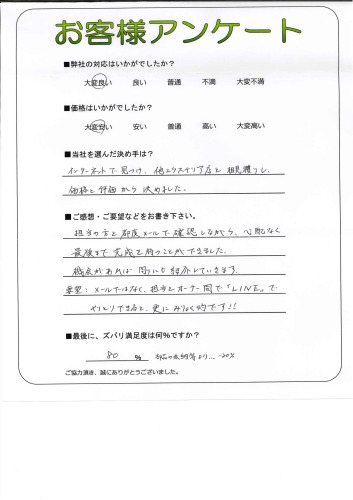 お客様アンケート
■弊社の対応はいかがでしたか？
大変良い 良い 普通 不満 大変不満
■価格はいかがでしたか？
大変安い 安い 普通 高い 大変高い
■当社を選んだ決め手は？
インターネットで見つけ、他エクステリア店と相見積りし、
価格と評価から決めました。
■ご感想・ご要望などをお書き下さい。
担当の方と都度メールで確認しながら、心配なく
最後まで完成を待つことができました。
機会があれば周りにも紹介していきます。
要望：メールではなく、担当とオーナー間で「LINE」で
やりとりできると、更に魅力的です!!
■最後に、ズバリ満足度は何%ですか？
80 % より… -20%
ご協力頂き、誠にありがとうございました。